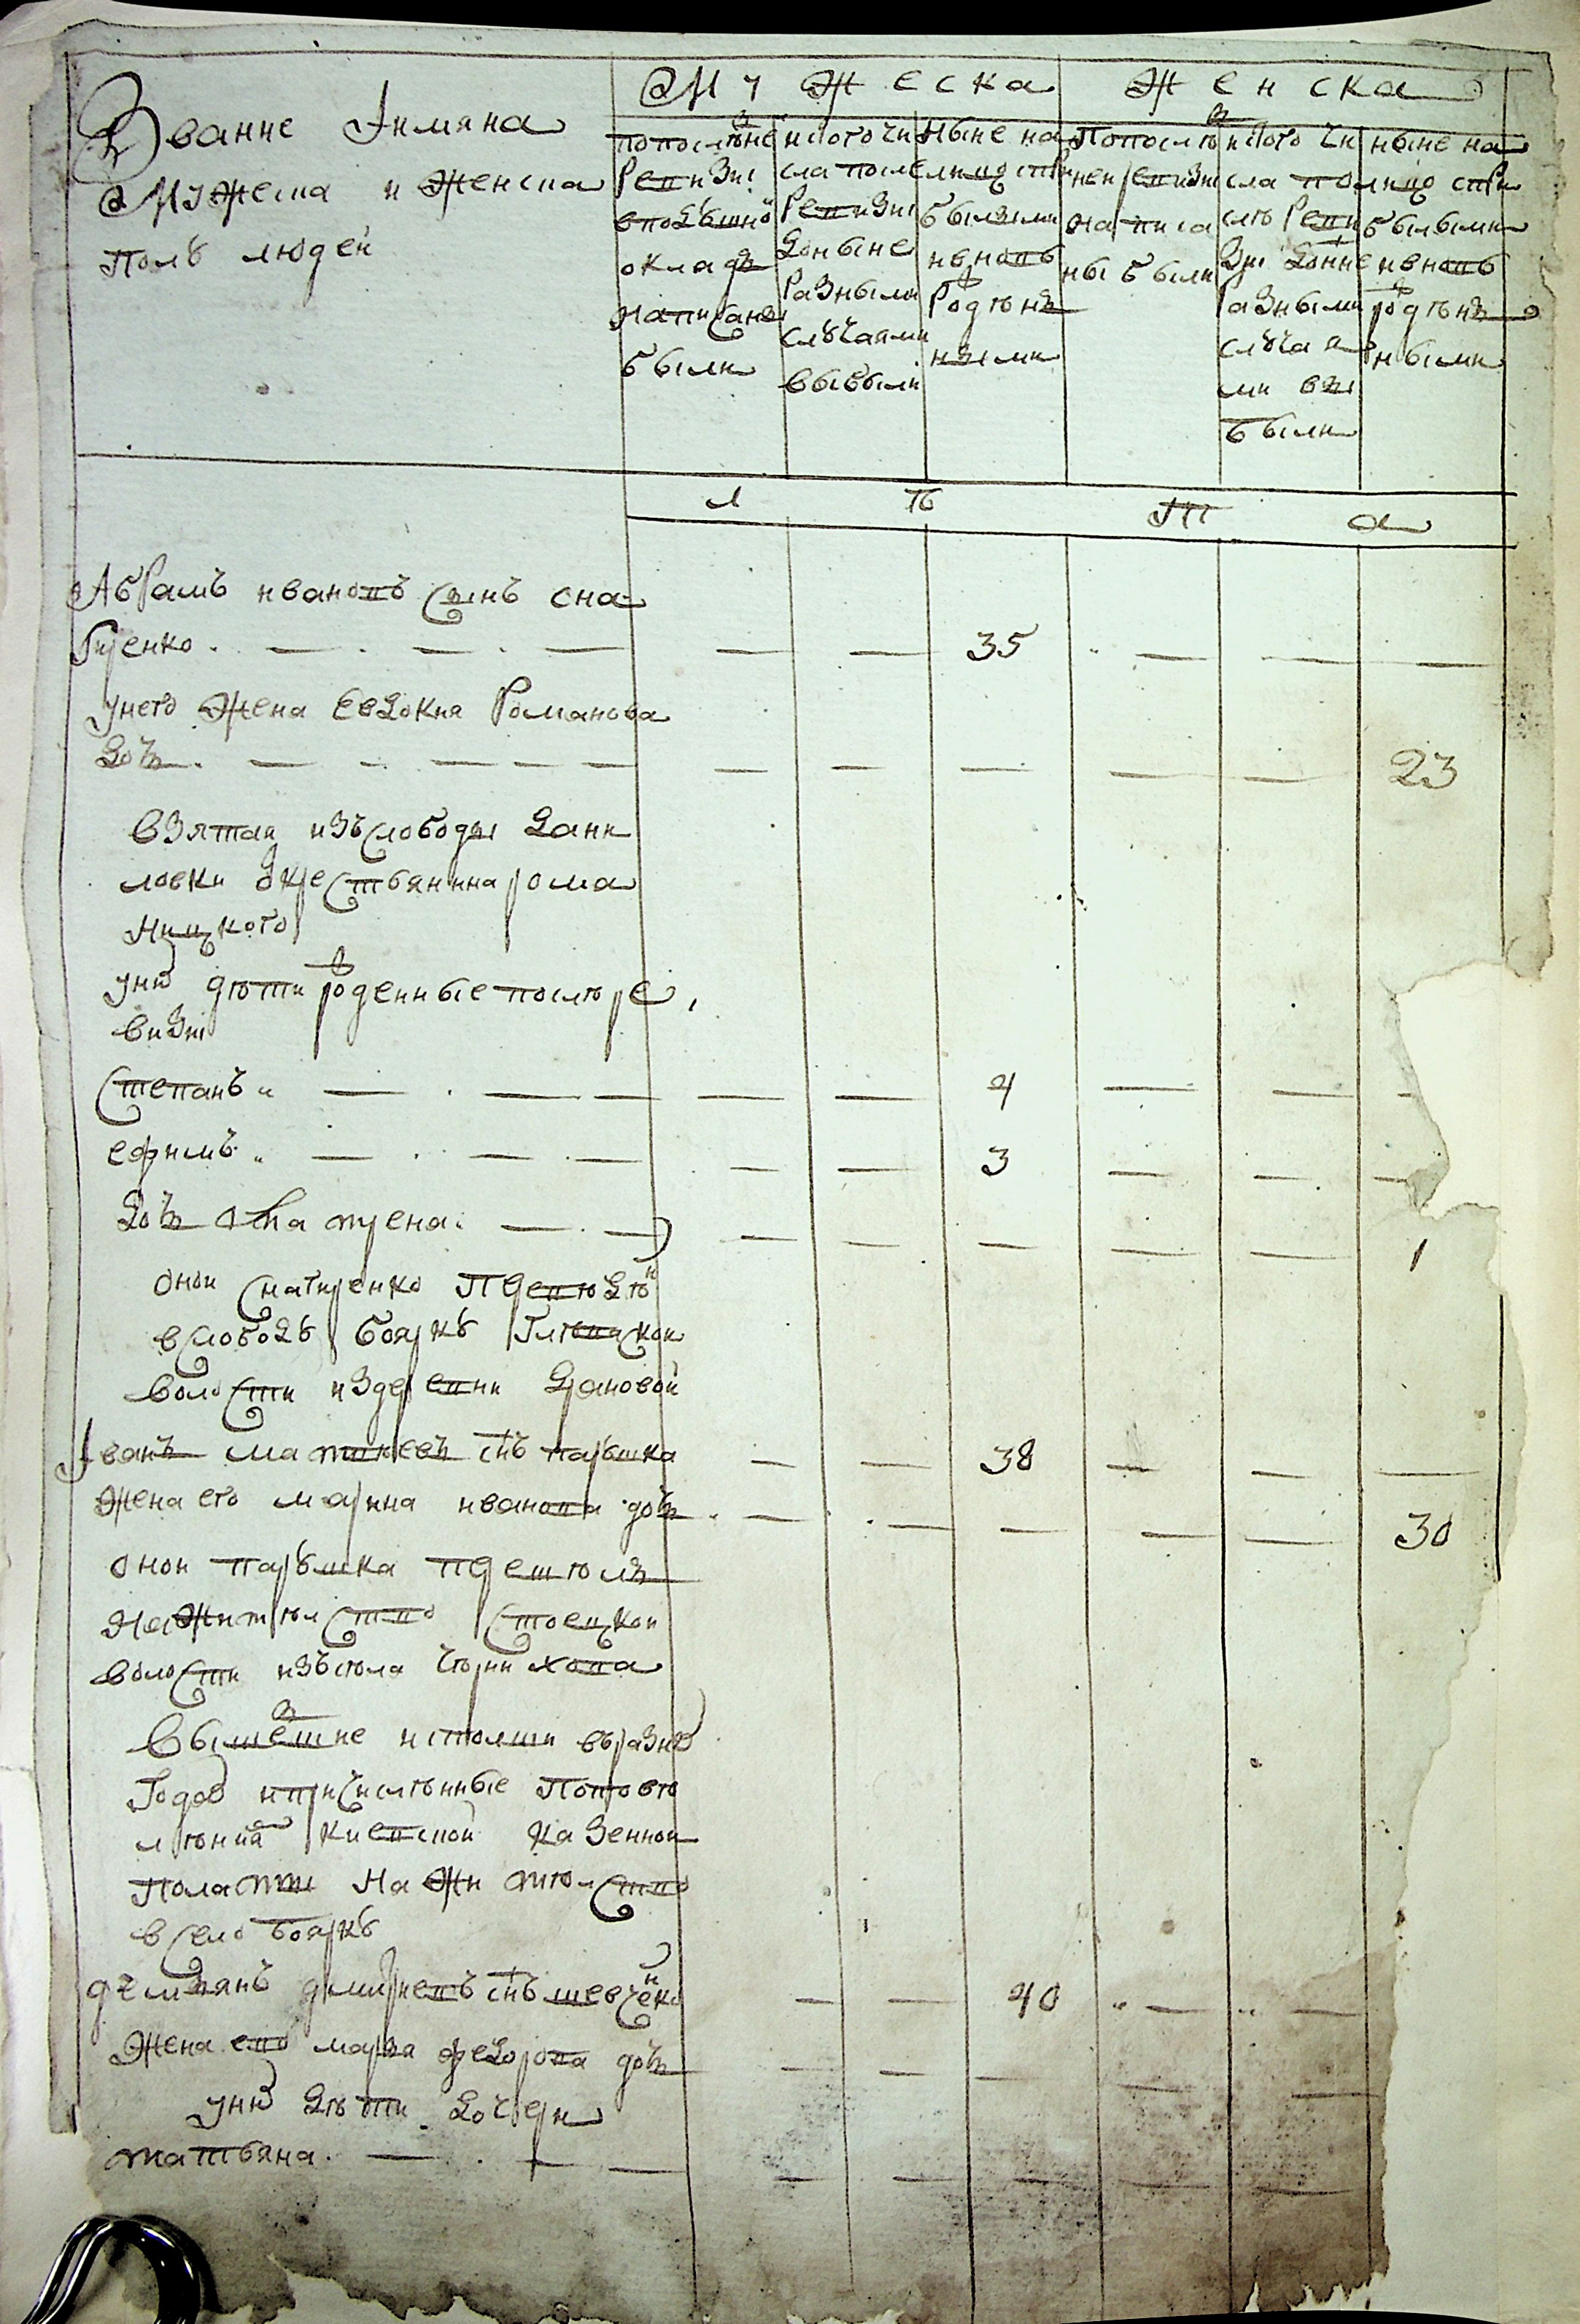 Мужеска Женска
Звание Iимяна
Мужеска и Женска
полу людей
попослѣдне
Ревизиi
вподушно
окладъ
написаны
были
исого чи
сла после
Ревизиi
доныне
Разными
случаями
выбыли
Ныне на
лицо спри
былыми
ивновь
Рожденъ
ными
Попослѣд
ней ревизиi
написа
ны были
исого чи
сла по
слѣ Реви
зиi донне
Разными
случая
ми вы
были
ныне на
лицо спри
былыми
ивновь
рожденъ
ными
л ѣ т а
Абрамъ ивановъ сынъ сна
гиренко 35
унего Жена Евдокия Романова
дочь 23
взятая изъ слободы дани
ловки у крестьянина рома
Ницкого
уних дѣти рожденные послѣ ре
визиi
Степанъ 4
ефимъ 3
дочь Матрена 1
оной Снагиренко пришелъ
вслободу боярку Глевацкой
волости издеревни Ерановой
Iванъ матвѣевъ снъ парушка 38
Жена его марина иванова дочь 30
оной парушка пришелъ
наЖителство Стоецкой
волости изъ села
Вышешие исполши вразных
Годов иприсчисленные Поповѣ
лѣния киевской казенной
Полаты На Жителство
в Село боярку
демьянъ дмитриевъ снъ шевченко 40
Жена ево марва федорова дочь
уних дѣти дочери
татьяна